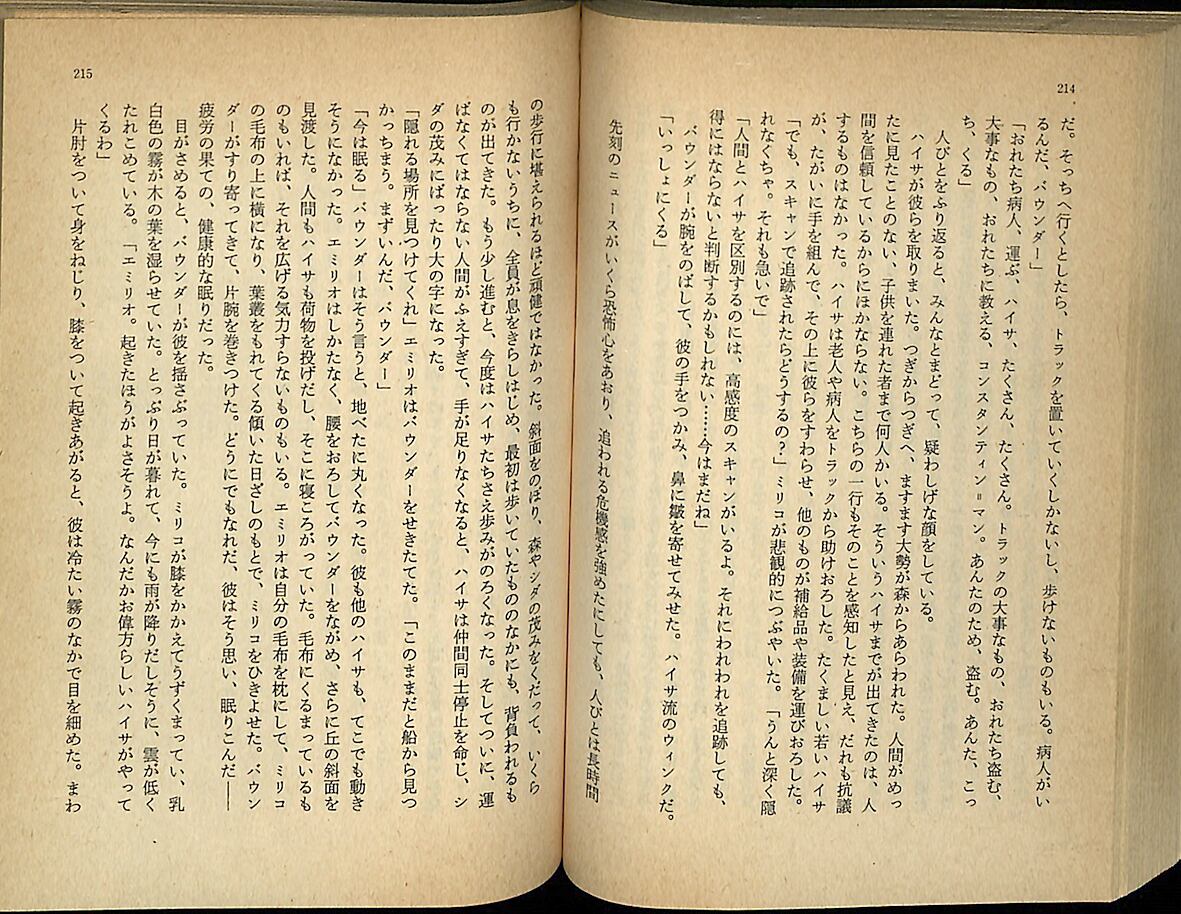 214
だ。そっちへ行くとしたら、トラックを置いていくしかないし、歩けないものもいる。病人がい
るんだ、バウンダー」
「おれたち病人、運ぶ、ハイサ、たくさん、たくさん。トラックの大事なもの、おれたち盗む、
大事なもの、おれたちに教える、コンスタンティン＝マン。あんたのため、盗む。あんた、こっ
ち、くる」
人びとをふり返ると、みんなとまどって、疑わしげな顔をしている。
ハイサが彼らを取りまいた。つぎからつぎへ、ますます大勢が森からあらわれた。人間がめっ
たに見たことのない、子供を連れた者まで何人かいる。そういうハイサまでが出てきたのは、人
間を信頼しているからにほかならない。こちらの一行もそのことを感知したと見え、だれも抗議
するものはなかった。ハイサは老人や病人をトラックから助けおろした。たくましい若いハイサ
が、たがいに手を組んで、その上に彼らをすわらせ、他のものが補給品や装備を運びおろした。
「でも、スキャンで追跡されたらどうするの？」ミリコが悲観的につぶやいた。「うんと深く隠
れなくちゃ。それも急いで」
「人間とハイサを区別するのには、高感度のスキャンがいるよ。それにわれわれを追跡しても、
得にはならないと判断するかもしれない……今はまだね」
バウンダーが腕をのばして、彼の手をつかみ、鼻に皺を寄せてみせた。ハイサ流のウィンクだ。
「いっしょにくる」
先刻のニュースがいくら恐怖心をあおり、追われる危機感を強めたにしても、人びとは長時間
215
の歩行に堪えられるほど頑健ではなかった。斜面をのぼり、森やシダの茂みをくだって、いくら
も行かないうちに、全員が息をぎらしはじめ、最初は歩いていたもののなかにも、背負われるも
のが出てきた。もう少し進むと、今度はハイサたちさえ歩みがのろくなった。そしてついに、運
ばなくてはならない人間がふえすぎて、手が足りなくなると、ハイサは仲間同士停止を命じ、シ
ダの茂みにばったり大の字になった。
「隠れる場所を見つけてくれ」エミリオはバウンダーをせきたてた。「このままだと船から見つ
かっちまう。まずいんだ、バウンダー」
「今は眠る」バウンダーはそう言うと、地べたに丸くなった。彼も他のハイサも、てこでも動き
そうになかった。エミリオはしかたなく、腰をおろしてバウンダーをながめ、さらに丘の斜面を
見渡した。人間もハイサも荷物を投げだし、そこに寝ころがっていた。毛布にくるまっているも
のもいれば、それを広げる気力すらないものもいる。エミリオは自分の毛布を枕にして、ミリコ
の毛布の上に横になり、葉叢をもれてくる傾いた日ざしのもとで、ミリコをひきよせた。バウン
ダーがすり寄ってきて、片腕を巻きつけた。どうにでもなれだ、彼はそう思い、眠りこんだ――
疲労の果ての、健康的な眠りだった。
目がさめると、バウンダーが彼を揺さぶっていた。ミリコが膝をかかえてうずくまってい、乳
白色の霧が木の葉を湿らせていた。とっぷり日が暮れて、今にも雨が降りだしそうに、雲が低く
たれこめている。「エミリオ。起きたほうがよさそうよ。なんだかお偉方らしいハイサがやって
くるわ」
片肘をついて身をねじり、膝をついて起きあがると、彼は冷たい霧のなかで目を細めた。まわ